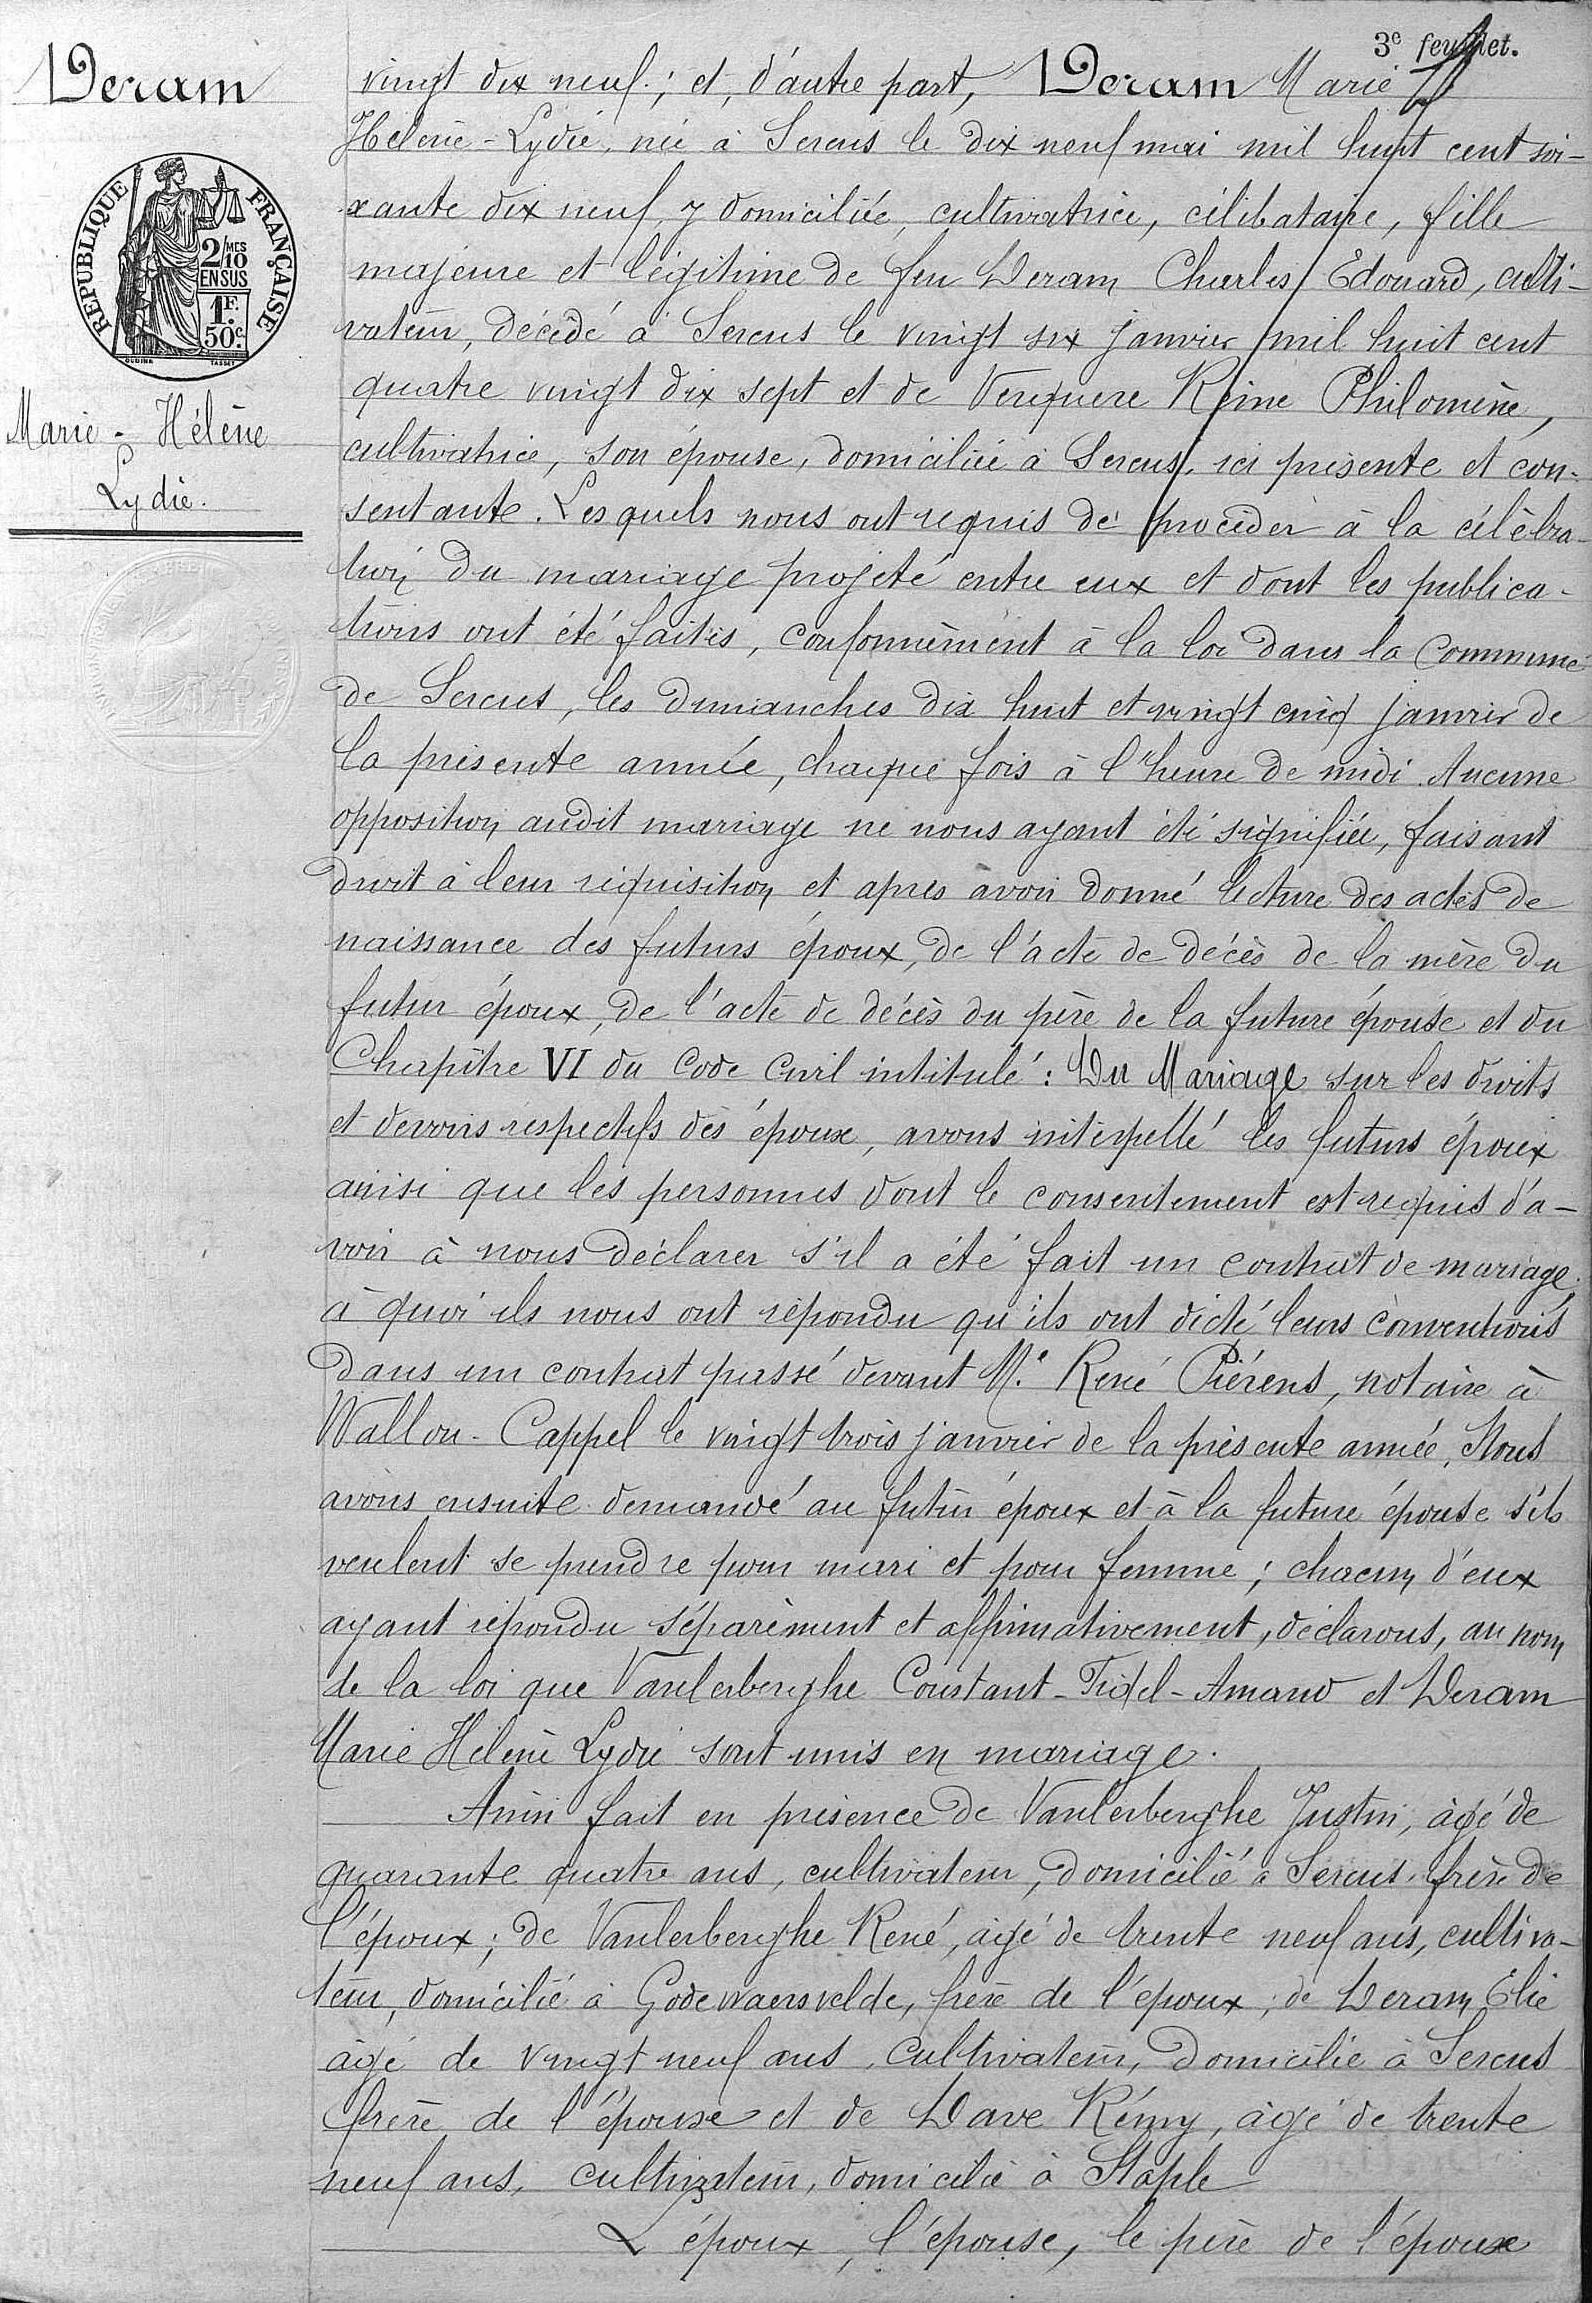 3e feuillet.
Deram
RÉPUBLIQUE FRANÇAISE
2/MES
10
EN SUS
1F.
50c.
OUDINÉ TASSET
Marie - Hélène
Lydie.
vingt dix neuf.; et, d'autre part, Deram Marie
Hélène-Lydie, née à Sercus le dix neuf mai mil huit cent soi-
xante dix neuf, y domiciliée, cultivatrice, célibataire, fille
majeure et légitime de feu Deram Charles Edouard, culti-
vateur, décédé à Sercus le vingt six janvier mil huit cent
quatre vingt dix sept et de Verquere Reine Philomène,
cultivatrice, son épouse, domiciliée à Sercus, ici présente et con-
sentante. Lesquels nous ont requis de procéder à la célébra-
tion du mariage projeté entre eux et dont les publica-
tions ont été faites, conformément à la loi dans la commune
de Sercus, les dimanches dix huit et vingt cinq janvier de
la présente année, chaque fois à l'heure de midi. Aucune
opposition audit mariage ne nous ayant été signifiée, faisant
droit à leur réquisition et après avoir donné lecture des actes de
naissance des futurs époux, de l'acte de décès de la mère du
futur époux, de l'acte de décès du père de la future épouse et du
Chapitre VI du Code Civil intitulé: Du Mariage sur les droits
et devoirs respectifs des époux, avons interpellé les futurs époux
ainsi que les personnes dont le consentement est requis d'a-
voir à nous déclarer s'il a été fait un contrat de mariage
à quoi ils nous ont répondu qu'ils ont dicté leurs conventions
dans un contrat passé devant Me René Piérens, notaire à
Wallon-Cappel le vingt trois janvier de la présente année. Nous
avons ensuite demandé au futur époux et à la future épouse s'ils
veulent se prendre pour mari et pour femme; chacun d'eux
ayant répondu séparément et affirmativement, déclarons, au nom
de la loi que Vanlerberghe Constant-Fidel-Amand et Deram
Marie Hélène Lydie sont unis en mariage.
Ainsi fait en présence de Vanlerberghe Justin, âgé de
quarante quatre ans, cultivateur, domicilié à Sercus, frère de
l'époux; de Vanlerberghe René, âgé de trente neuf ans, cultiva-
teur, domicilié à Godewaersvelde, frère de l'époux; de Deram Elie
âgé de vingt neuf ans, cultivateur, domicilié à Sercus
frère de l'épouse et de Dave Rémy, âgé de trente
neuf ans, cultivateur, domicilié à Staple
L'époux, l'épouse, le père de l'époux